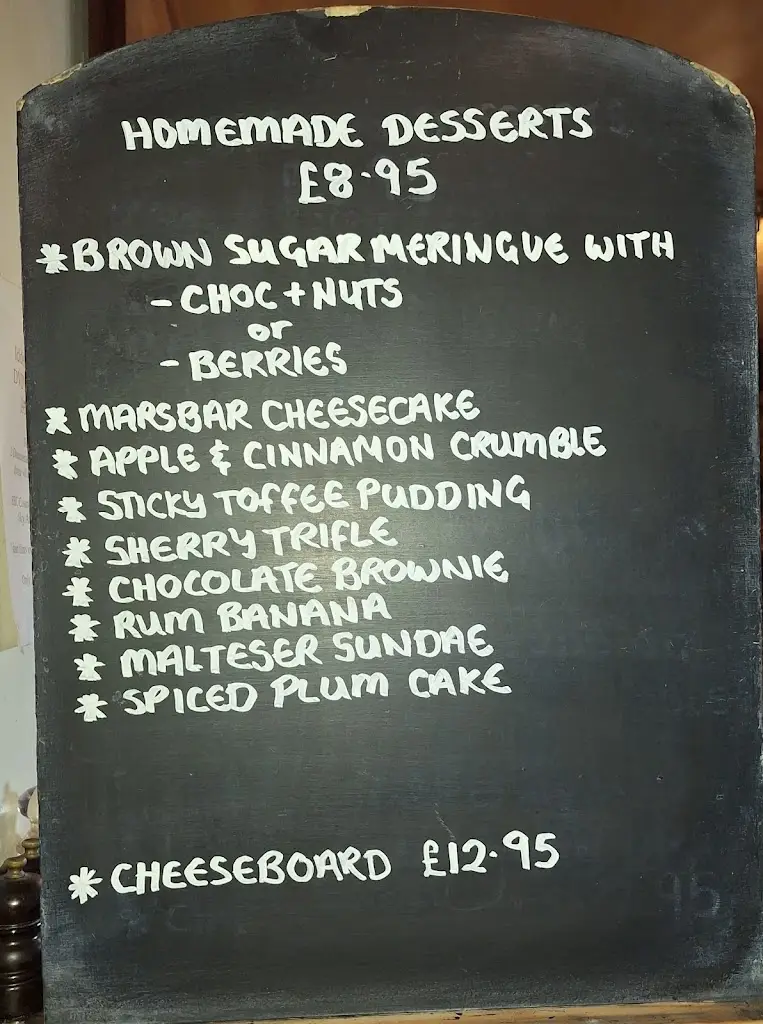 HOMEMADE DESSERTS
£8.95
* BROWN SUGAR MERINGUE WITH
- CHOC + NUTS
or
- BERRIES
* MARSBAR CHEESECAKE
* APPLE & CINNAMON CRUMBLE
* STICKY TOFFEE PUDDING
* SHERRY TRIFLE
* CHOCOLATE BROWNIE
* RUM BANANA
* MALTESER SUNDAE
* SPICED PLUM CAKE
* CHEESEBOARD £12.95